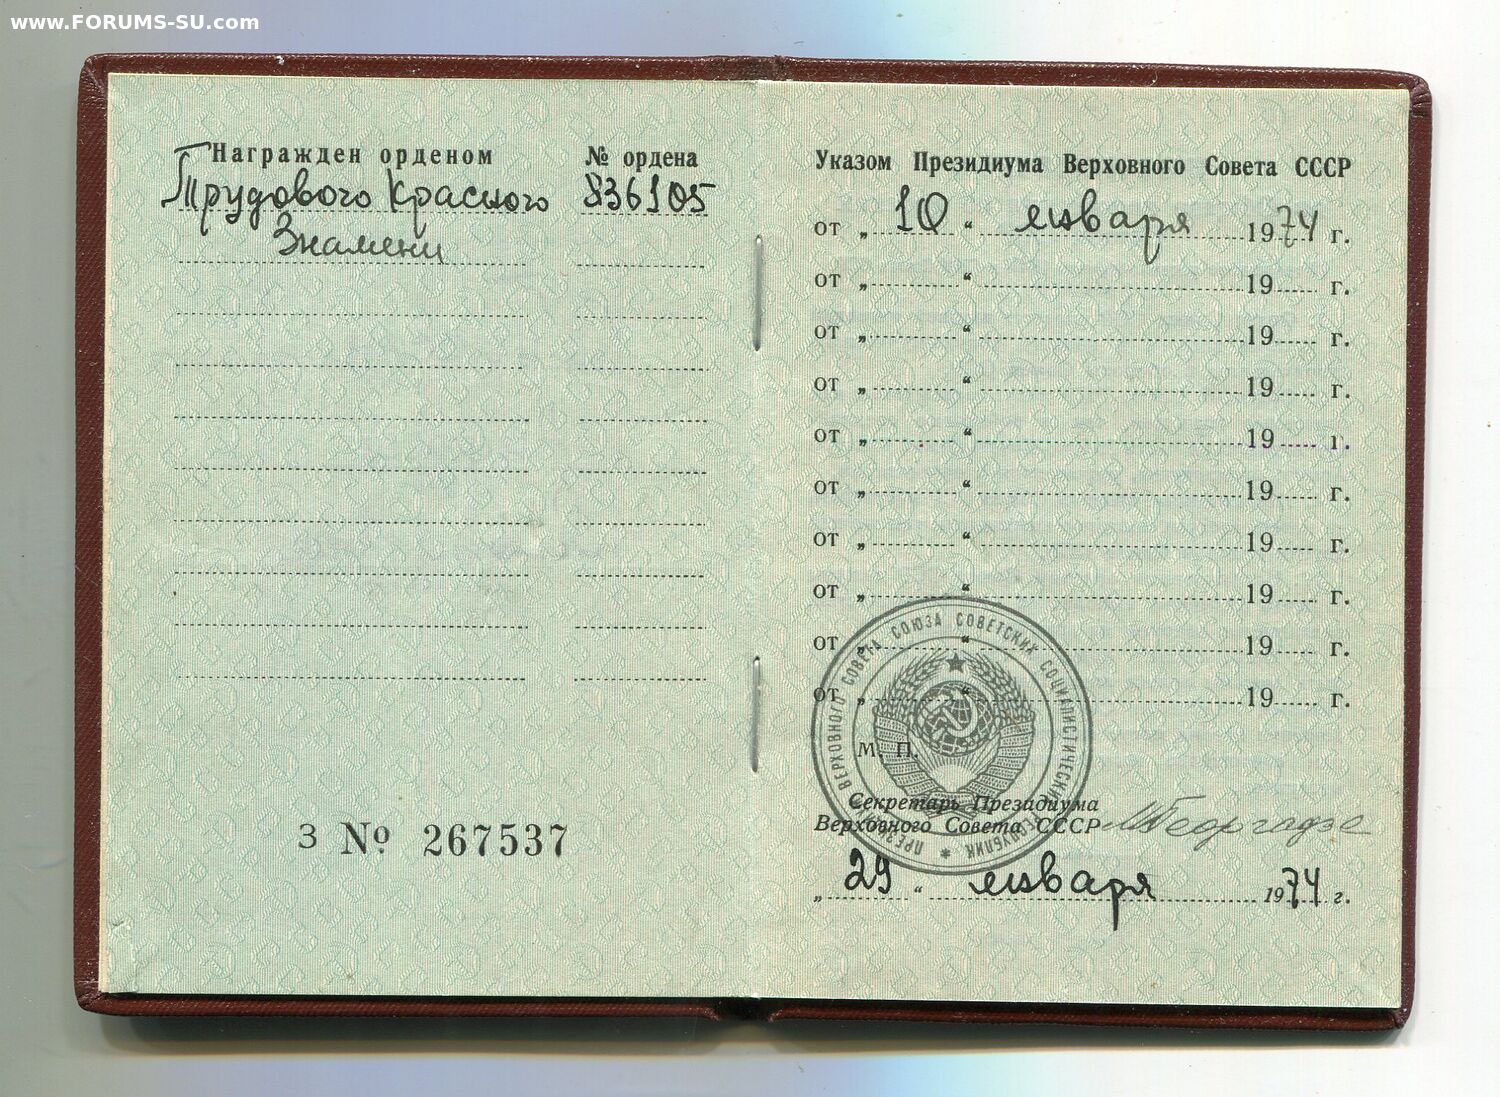 www.FORUMS-SU.com
Награжден орденом № ордена
Трудового Красного 836105
Знамени
З № 267537
Указом Президиума Верховного Совета СССР
от „ 10 “ января 1974 г.
от „ “ 19 г.
от „ “ 19 г.
от „ “ 19 г.
от „ “ 19 г.
от „ “ 19 г.
от „ “ 19 г.
от „ “ 19 г.
от „ “ 19 г.
от „ “ 19 г.
ПРЕЗИДИУМ ВЕРХОВНОГО СОВЕТА СОЮЗА СОВЕТСКИХ СОЦИАЛИСТИЧЕСКИХ РЕСПУБЛИК
М. П.
Секретарь Президиума
Верховного Совета СССР МГеоргадзе
„ 29 “ января 1974 г.